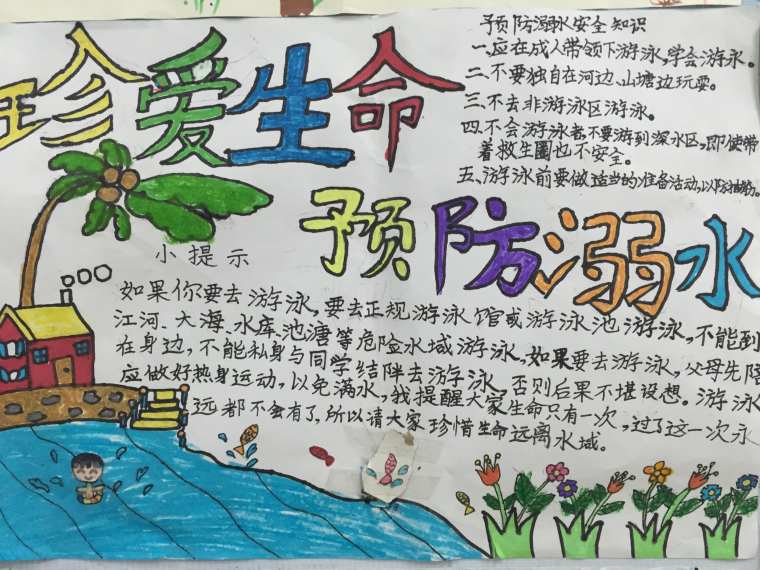 珍爱生命
预防溺水
预防溺水安全知识
一、应在成人带领下游泳,学会游泳。
二、不要独自在河边、山塘边玩耍。
三、不去非游泳区游泳。
四、不会游泳者不要游到深水区,即使带
着救生圈也不安全。
五、游泳前要做适当的准备活动,以防抽筋。
小提示
如果你要去游泳,要去正规游泳馆或游泳池游泳,不能到
江河、大海、水库池溏等危险水域游泳,如果要去游泳,父母先陪
在身边,不能私身与同学结陴去游泳,否则后果不堪设想。游泳
应做好热身运动,以免满水,我提醒大家生命只有一次,过了这一次永
远都不会有了,所以请大家珍惜生命远离水域。